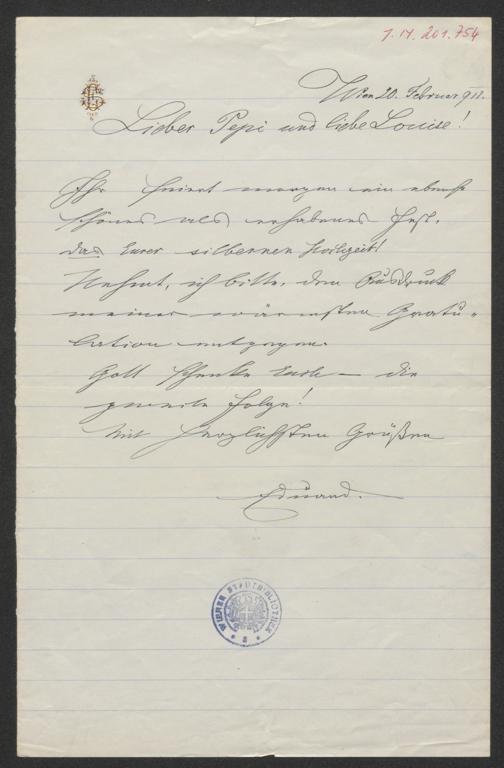 J.N. 201.754
Wien 20. Februar 911.
Lieber Pepi und liebe Louise!
Ihr feiert morgen ein ebenso
schönes als erhabenes Fest,
das Eurer silbernen Hochzeit!
Nehmt, ich bitte, den Ausdruck
meiner wärmsten Gratu-
lation entgegen.
Gott schenke Euch – die
zweite Folge!
Mit herzlichsten Grüßen
Eduard.
WIENER STADTBIBLIOTHEK